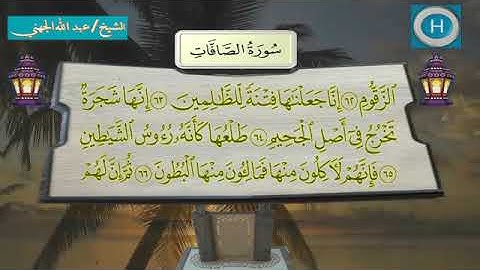 الشيخ/عبد الله الجهني
H
سُورَةُ الصَّافَّاتِ
ٱلزَّقُّومِ ٦٢ إِنَّا جَعَلْنَٰهَا فِتْنَةً لِّلظَّٰلِمِينَ ٦٣ إِنَّهَا شَجَرَةٌ
تَخْرُجُ فِىٓ أَصْلِ ٱلْجَحِيمِ ٦٤ طَلْعُهَا كَأَنَّهُۥ رُءُوسُ ٱلشَّيَٰطِينِ
٦٥ فَإِنَّهُمْ لَءَاكِلُونَ مِنْهَا فَمَالِـُٔونَ مِنْهَا ٱلْبُطُونَ ٦٦ ثُمَّ إِنَّ لَهُمْ